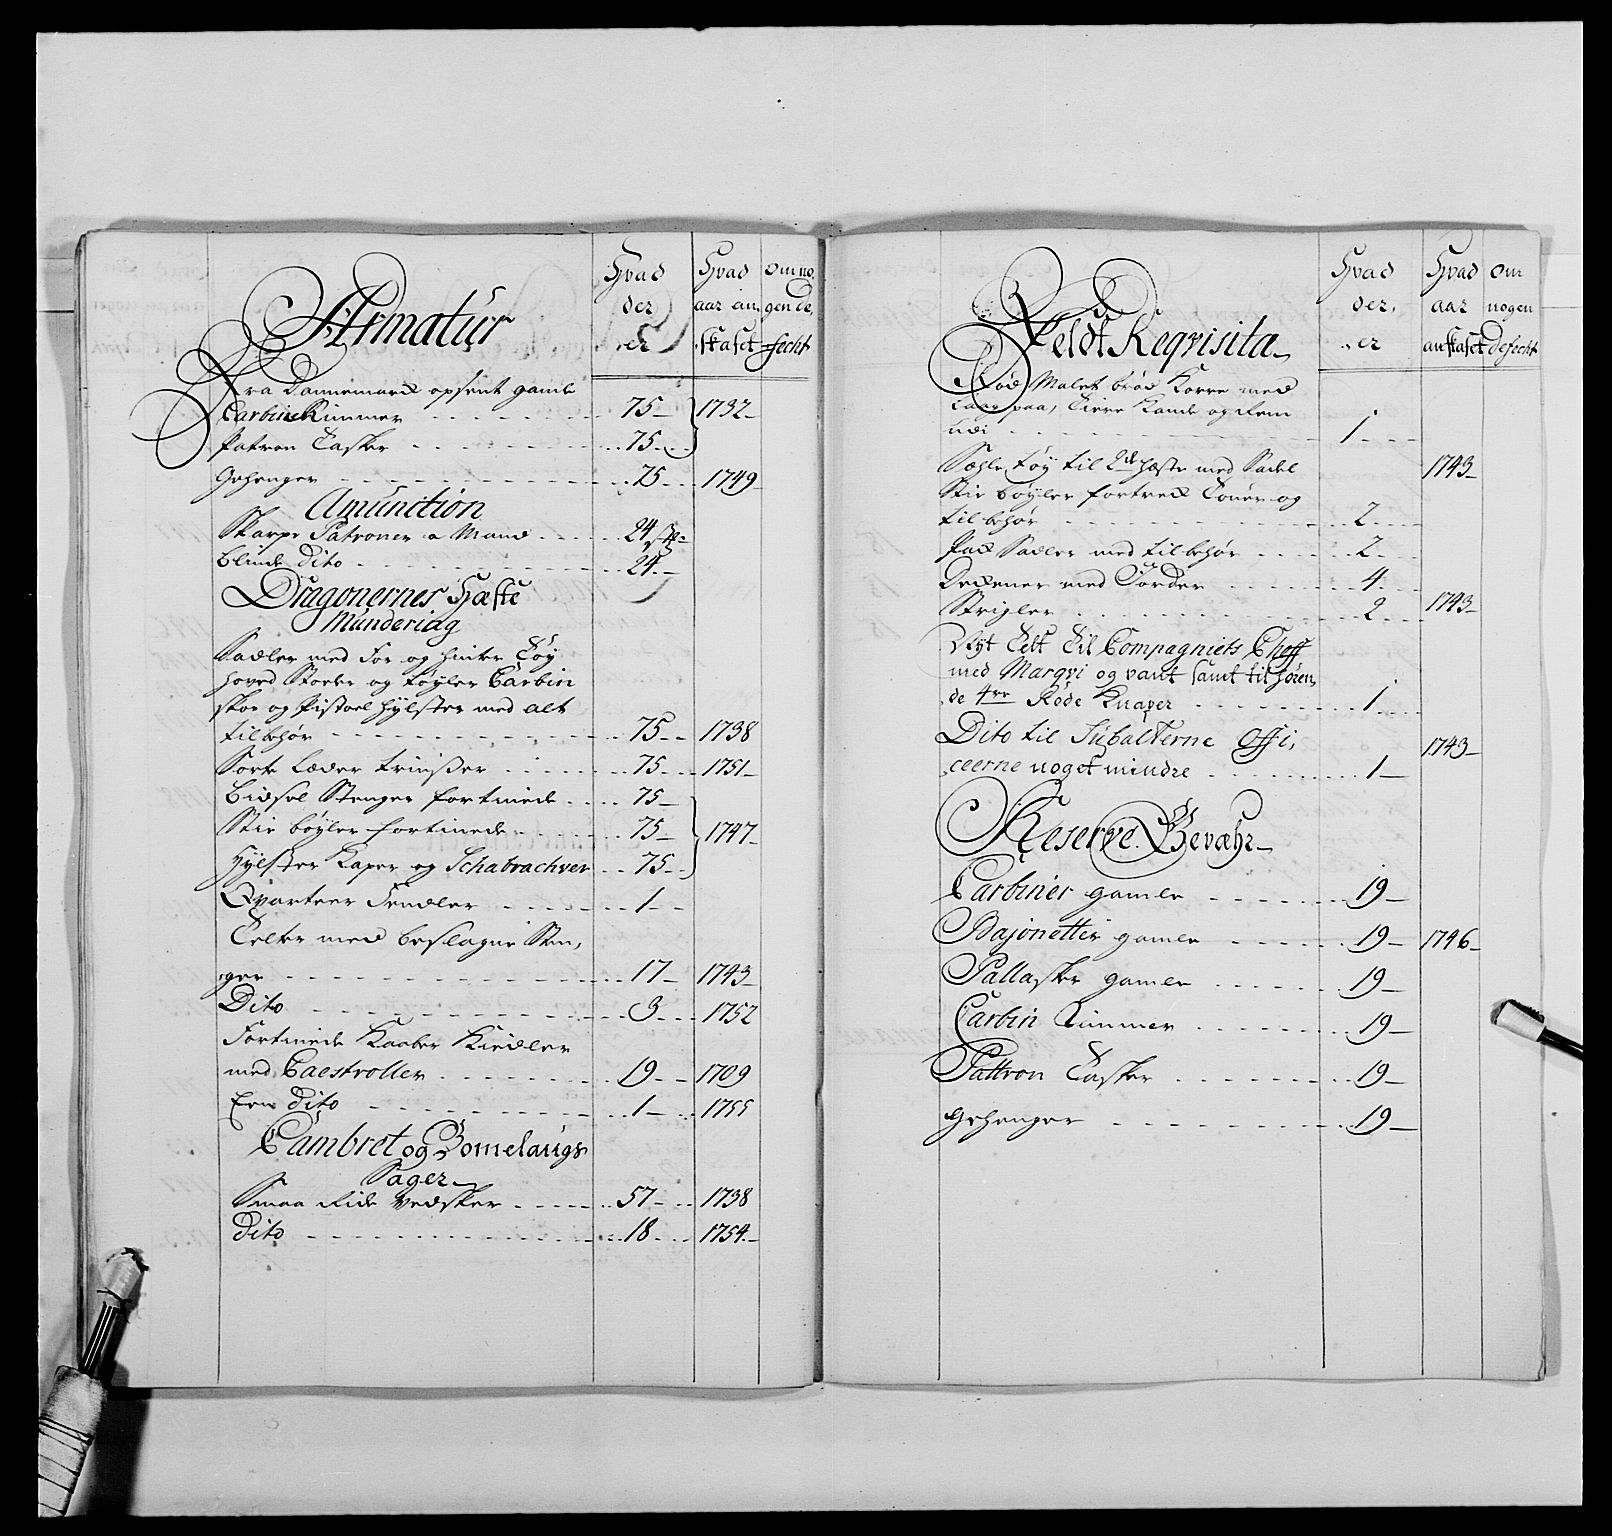 Armatur
Hvad der er
Hvad aar anskafet
Om nogen defecht
Fra Dannemarck opsent gamle
Carbin Rimmer 75 1732
Patron Tasker 75
Gehenger 75 1749
Amunition
Skarpe Patroner a Mand 24 stk
Blinde Dito 24
Dragonernes Hæste
Mundering
Sadler med For og hinter Tøy
hoved Stoeler og tøyler Carbin
skoe og Pistoel hylster med alt
tilbehør 75 1738
Sorte Læder trinßer 75 1751
Bidsel Stenger fortinede 75
Stie bøyler fortinede 75 1747
Hylster Kaper og Schabrachver 75
Qvarteer Fendler 1
Telter med beslagne Sten,
ger 17 1743
Dito 3 1752
Fortinede Kaaber Kiedler
med Caestroller 19 1709
Een Dito 1 1755
Cambret og Bomelaugs
Sager
Smaa Ride Vedsker 57 1738
Dito 18 1754
Feldt Reqvisita
Hvad der, er
Hvad aar anskafet
Om nogen defecht
Rød Malet brød Korre med
Laag paa, Tiere Kande og Rem
udi 1
Sehle tøy til 2de hæste med Sadel 1743
Stie bøyler fortred Touer og
tilbehør 2
Pack Sadler med tilbehør 2
Deckener med Jorder 4
Strigler 2 1743
Nyt Telt Til Compagniets Cheff
med Marqvi og vant samt tilhøren,
de 4re Røde Knaper 1
Dito til Subalterne Offi, 1743
ceerne noget mindre 1
Reserve Bevæhr
Carbiner gamle 19
Bajonetter gamle 19 1746
Pallasker gamle 19
Carbin Rimmer 19
Pattron Tasker 19
Gehenger 19